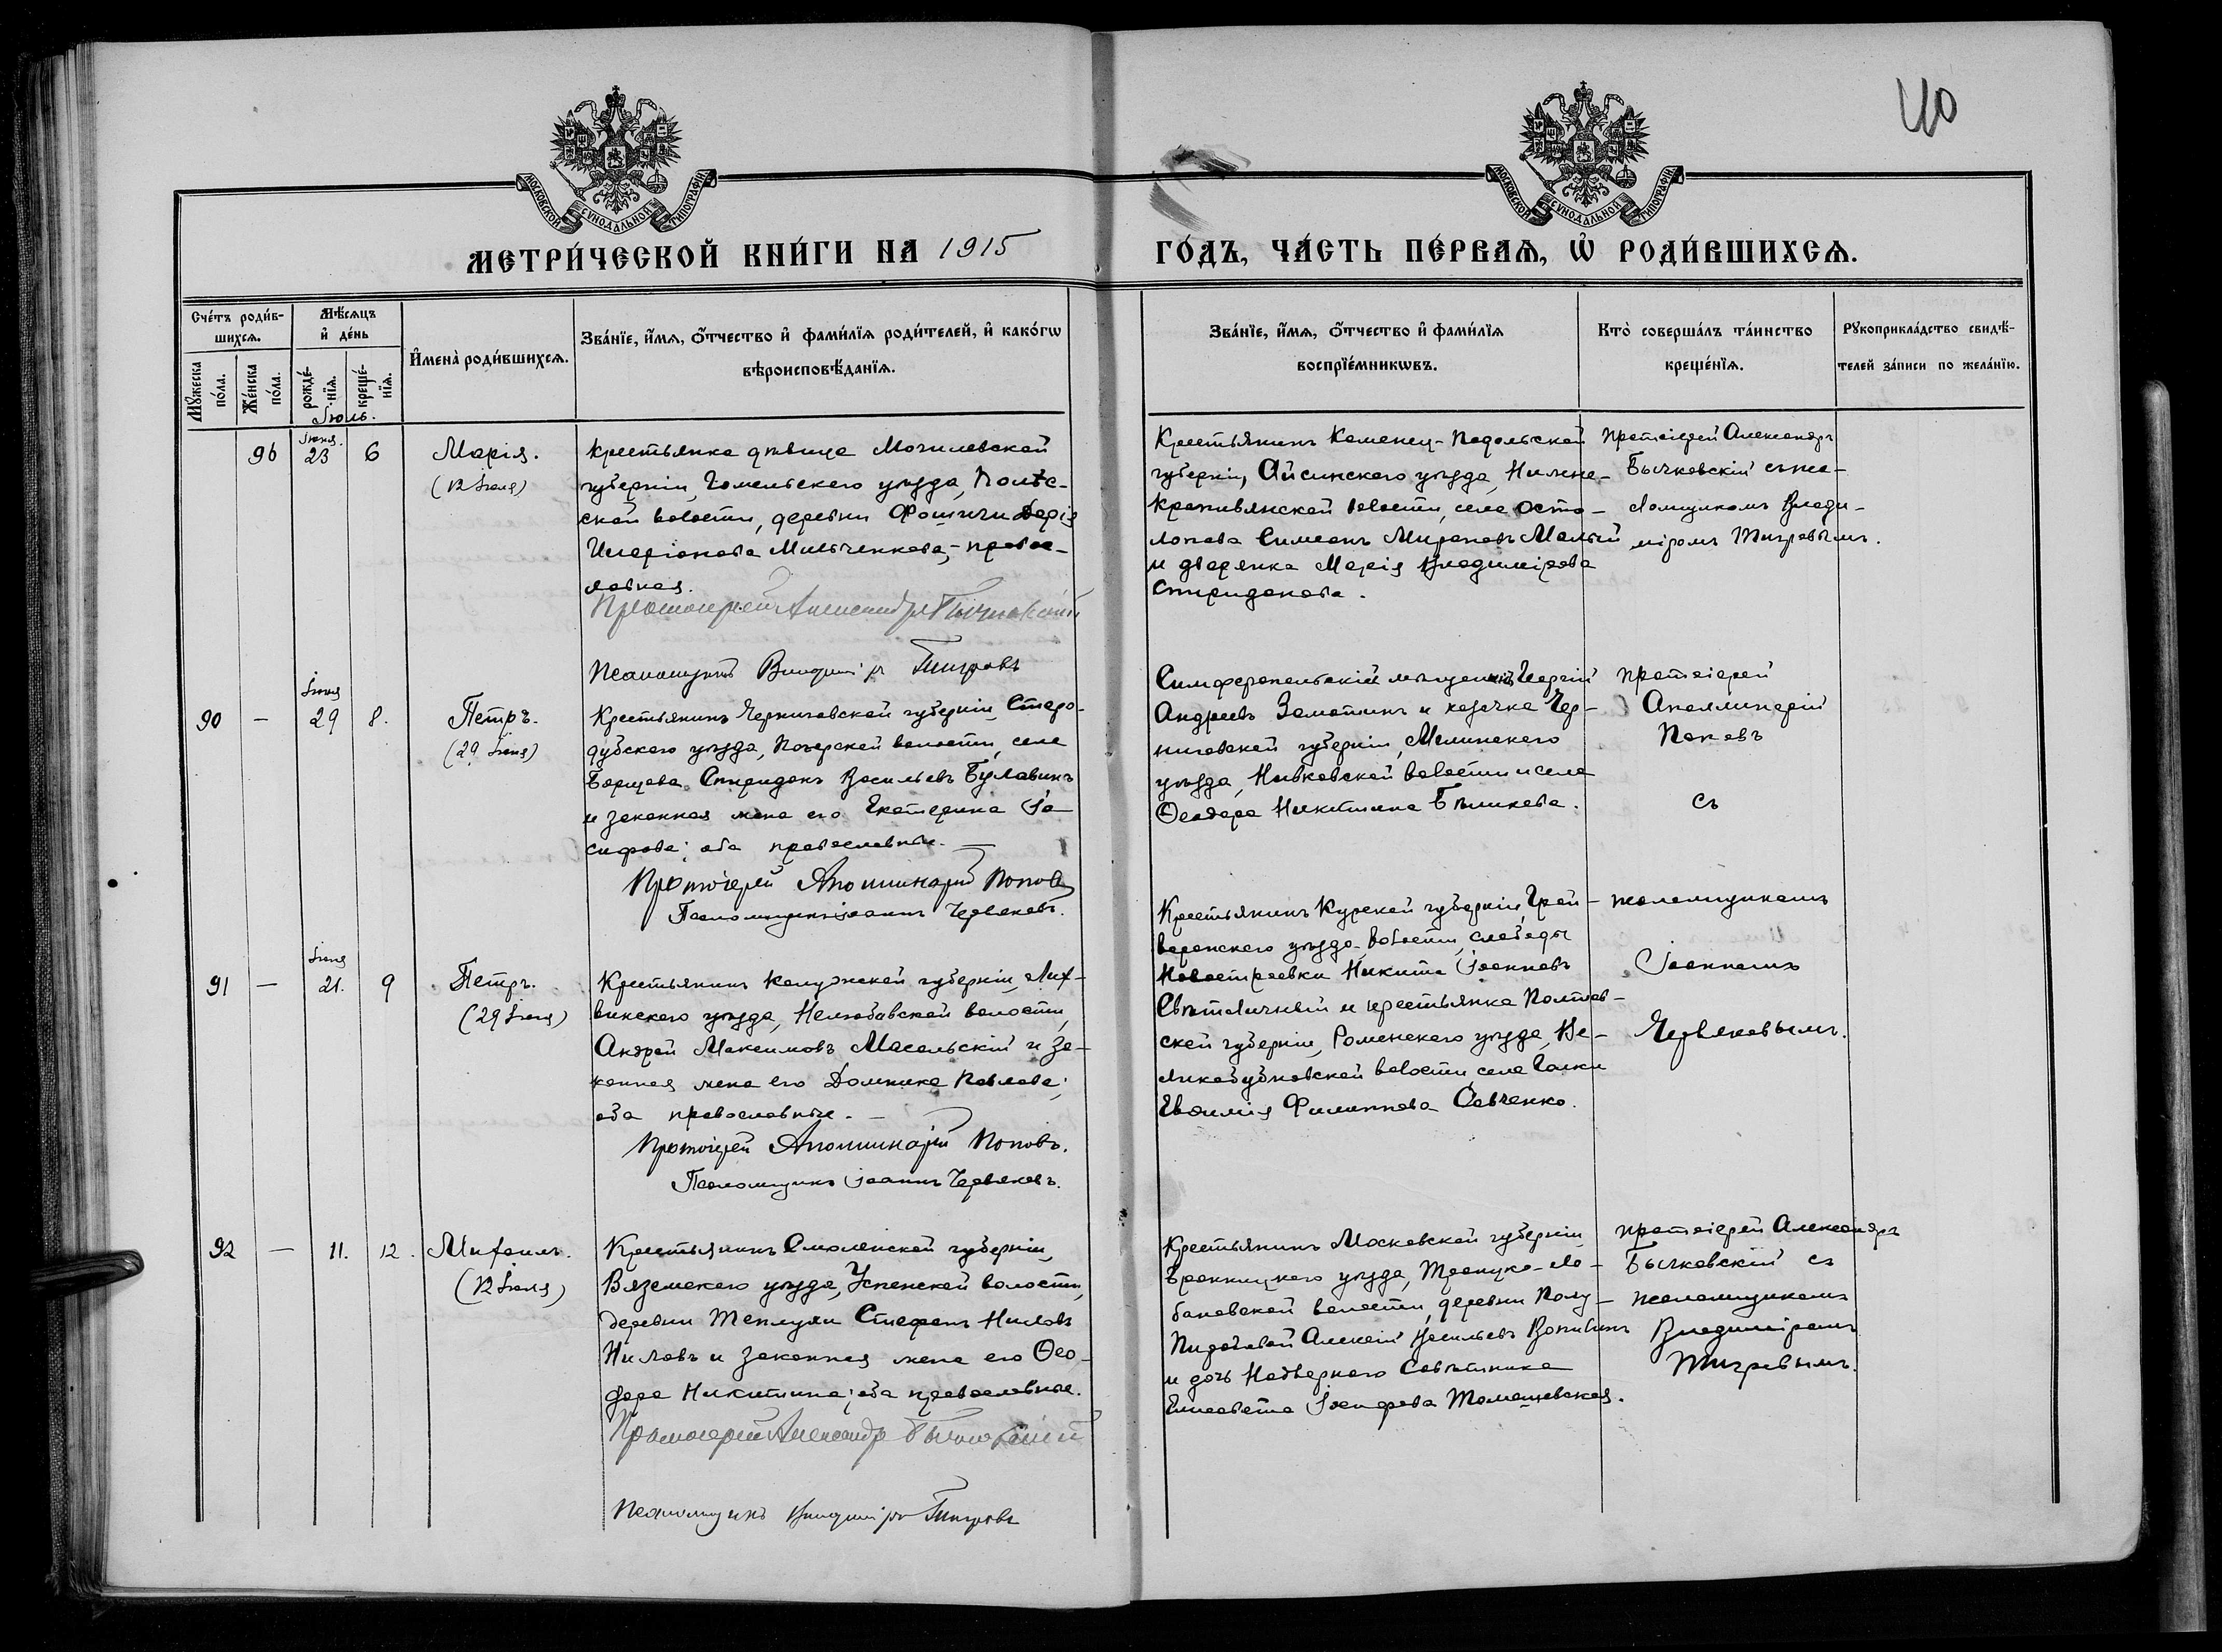 40
МОСКОВСКОЙ СѴНОДАЛЬНОЙ ТИПОГРАФІИ
МОСКОВСКОЙ СѴНОДАЛЬНОЙ ТИПОГРАФІИ
МЕТРИ́ЧЕСКОЙ КНИ́ГИ НА 1915 ГО́ДЪ, ЧА́СТЬ ПЕ́РВАѦ, Ѡ҆ РОДИ́ВШИХСѦ.
Сче́тъ роди́в-
шихсѧ.
Мꙋ́жеска по́ла.
Же́нска по́ла.
Мѣ́сѧцъ
и҆ де́нь
рожде́-нїѧ.
креще́-нїѧ.
И҆мена̀ роди́вшихсѧ.
Зва́нїе, и҆́мѧ, ѻ҆́тчество и҆ фами́лїѧ роди́телей, и҆ како́гѡ
вѣроисповѣ́данїѧ.
Зва́нїе, и҆́мѧ, ѻ҆́тчество и҆ фами́лїѧ
воспрїе́мникѡвъ.
Кто̀ соверша́лъ та́инство
креще́нїѧ.
Рꙋкоприкла́дство свидѣ́-
телей за́писи по жела́нїю.
Іюль.
96
Іюня.
23
6
Марія.
(12 Іюля)
Крестьянка дѣвица Могилевской
губерніи, Гомельскаго уѣзда, Полѣс-
ской волости, деревни Фошичи Дарія
Иларіонова Мильченкова,- правос-
лавная.
Протоіерей Александръ Бычковскій
Псаломщикъ Владиміръ Тигровъ
Крестьянинъ Каменец-Подольской
губерніи, Айсинскаго уѣзда, Нижне-
Кропивянской волости, села Оста-
лопова Симеонъ Мироновъ Малый
и дворянка Марія Владимірова
Спиридонова.
Протоіерей Александръ
Бычковскій съ пса-
ломщикомъ Влади-
міромъ Тигровымъ.
90
—
Іюня
29
8.
Петръ.
(29 Іюня)
Крестьянинъ Черниговской губерніи, Старо-
дубскаго уѣзда, Погарской волости, села
Борщова Спиридонъ Васильевъ Булавинъ
и законная жена его Екатерина Іо-
сифова; оба православные.—
Протоіерей Аполлинарій Поповъ
Псаломщикъ Іоаннъ Червяковъ.
Симферопольскій мѣщанинъ Георгій
Андреевъ Заматинъ и казачка Чер-
ниговской губерніи, Мглинскаго
уѣзда, Нивковской волости и села
Ѳеодора Никитина Бѣликова.
Протоіерей
Аполлинарій
Поповъ
съ
псаломщикомъ
Іоанномъ
Червяковымъ.
91
—
Іюня
21.
9
Петръ.
(29 Іюня)
Крестьянинъ Калужской губерніи, Лих-
винскаго уѣзда, Нелюбовской волости,
Андрей Максимовъ Масальскій и за-
конная жена его Домника Павлова;
оба православные.—
Протоіерей Аполлинарій Поповъ.
Псаломщикъ Іоаннъ Червяковъ.
Крестьянинъ Курской губерніи, Грай-
воронскаго уѣзда волости, слободы
Новостроевки Никита Іоанновъ
Свѣтличный и крестьянка Полтав-
ской губерніи, Роменскаго уѣзда, Ве-
ликобубновской волости, села Галки
Евѳимія Филиппова Савченко.
92
—
11.
12.
Михаилъ.
(12 Іюля)
Крестьянинъ Смоленской губерніи,
Вяземскаго уѣзда, Успенской волости,
деревни Теплухи Стефанъ Ниловъ
Ниловъ и законная жена его Ѳео-
дора Никитина; оба православные.
Протоіерей Александръ Бычковскій
Псаломщикъ Владиміръ Тигровъ
Крестьянинъ Московской губерніи
Бронницкаго уѣзда, Троицко-Ло-
бановской волости, деревни Полу-
Пидовой Алексѣй Васильевъ Вопилинъ
и дочь Надворнаго Совѣтника
Елисавета Іосифова Томашевская.
Протоіерей Александръ
Бычковскій съ
псаломщикомъ
Владиміромъ
Тигровымъ.